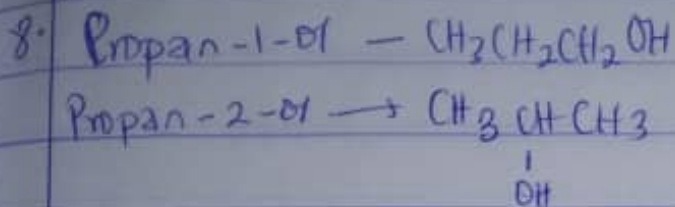 8. Propan-1-ol — CH3CH2CH2OH
Propan-2-ol → CH3CHCH3
|
OH